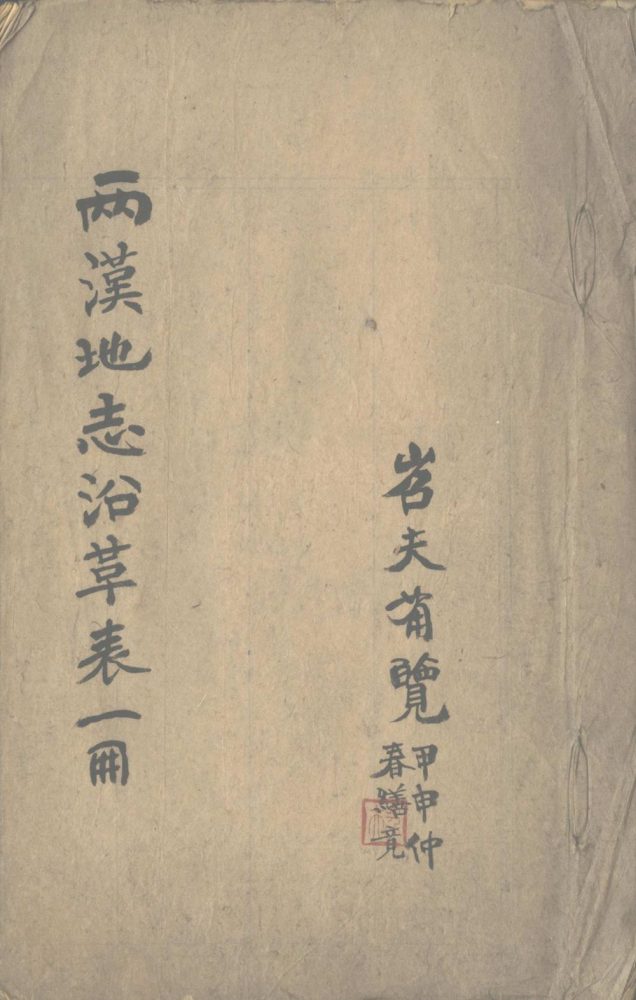 岧夫備覽
甲申仲
春繕竟
兩漢地志沿革表一冊